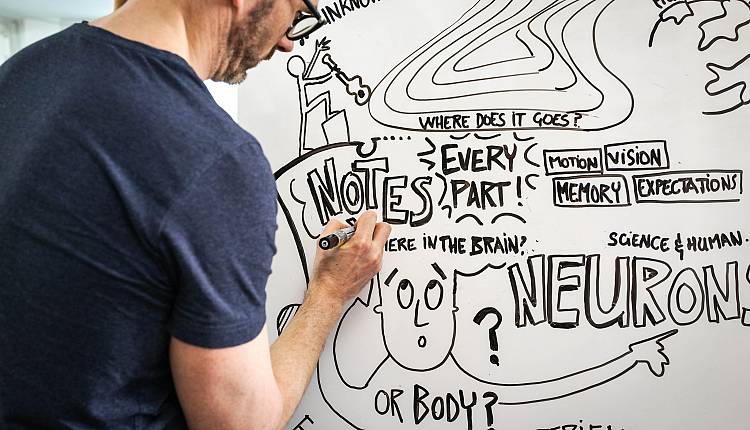 WHERE DOES IT GOES?
NOTES
EVERY
PART!
MOTION VISION
MEMORY EXPECTATIONS
IN THE BRAIN?
SCIENCE & HUMAN
NEURON
?
OR BODY?